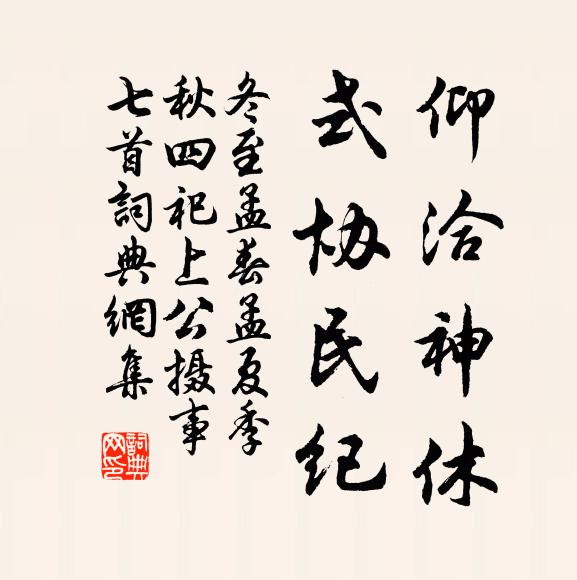 仰洽神休
式协民纪
冬至孟春孟夏季
秋四祀上公摄事
七首詞典網集
詞典網印